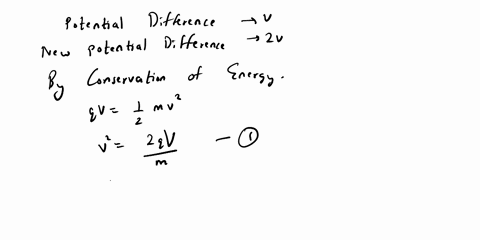 Potential Difference → V
New potential Difference → 2V
By Conservation of Energy.
qV = 1/2 mv²
v² = 2qV/m — ①